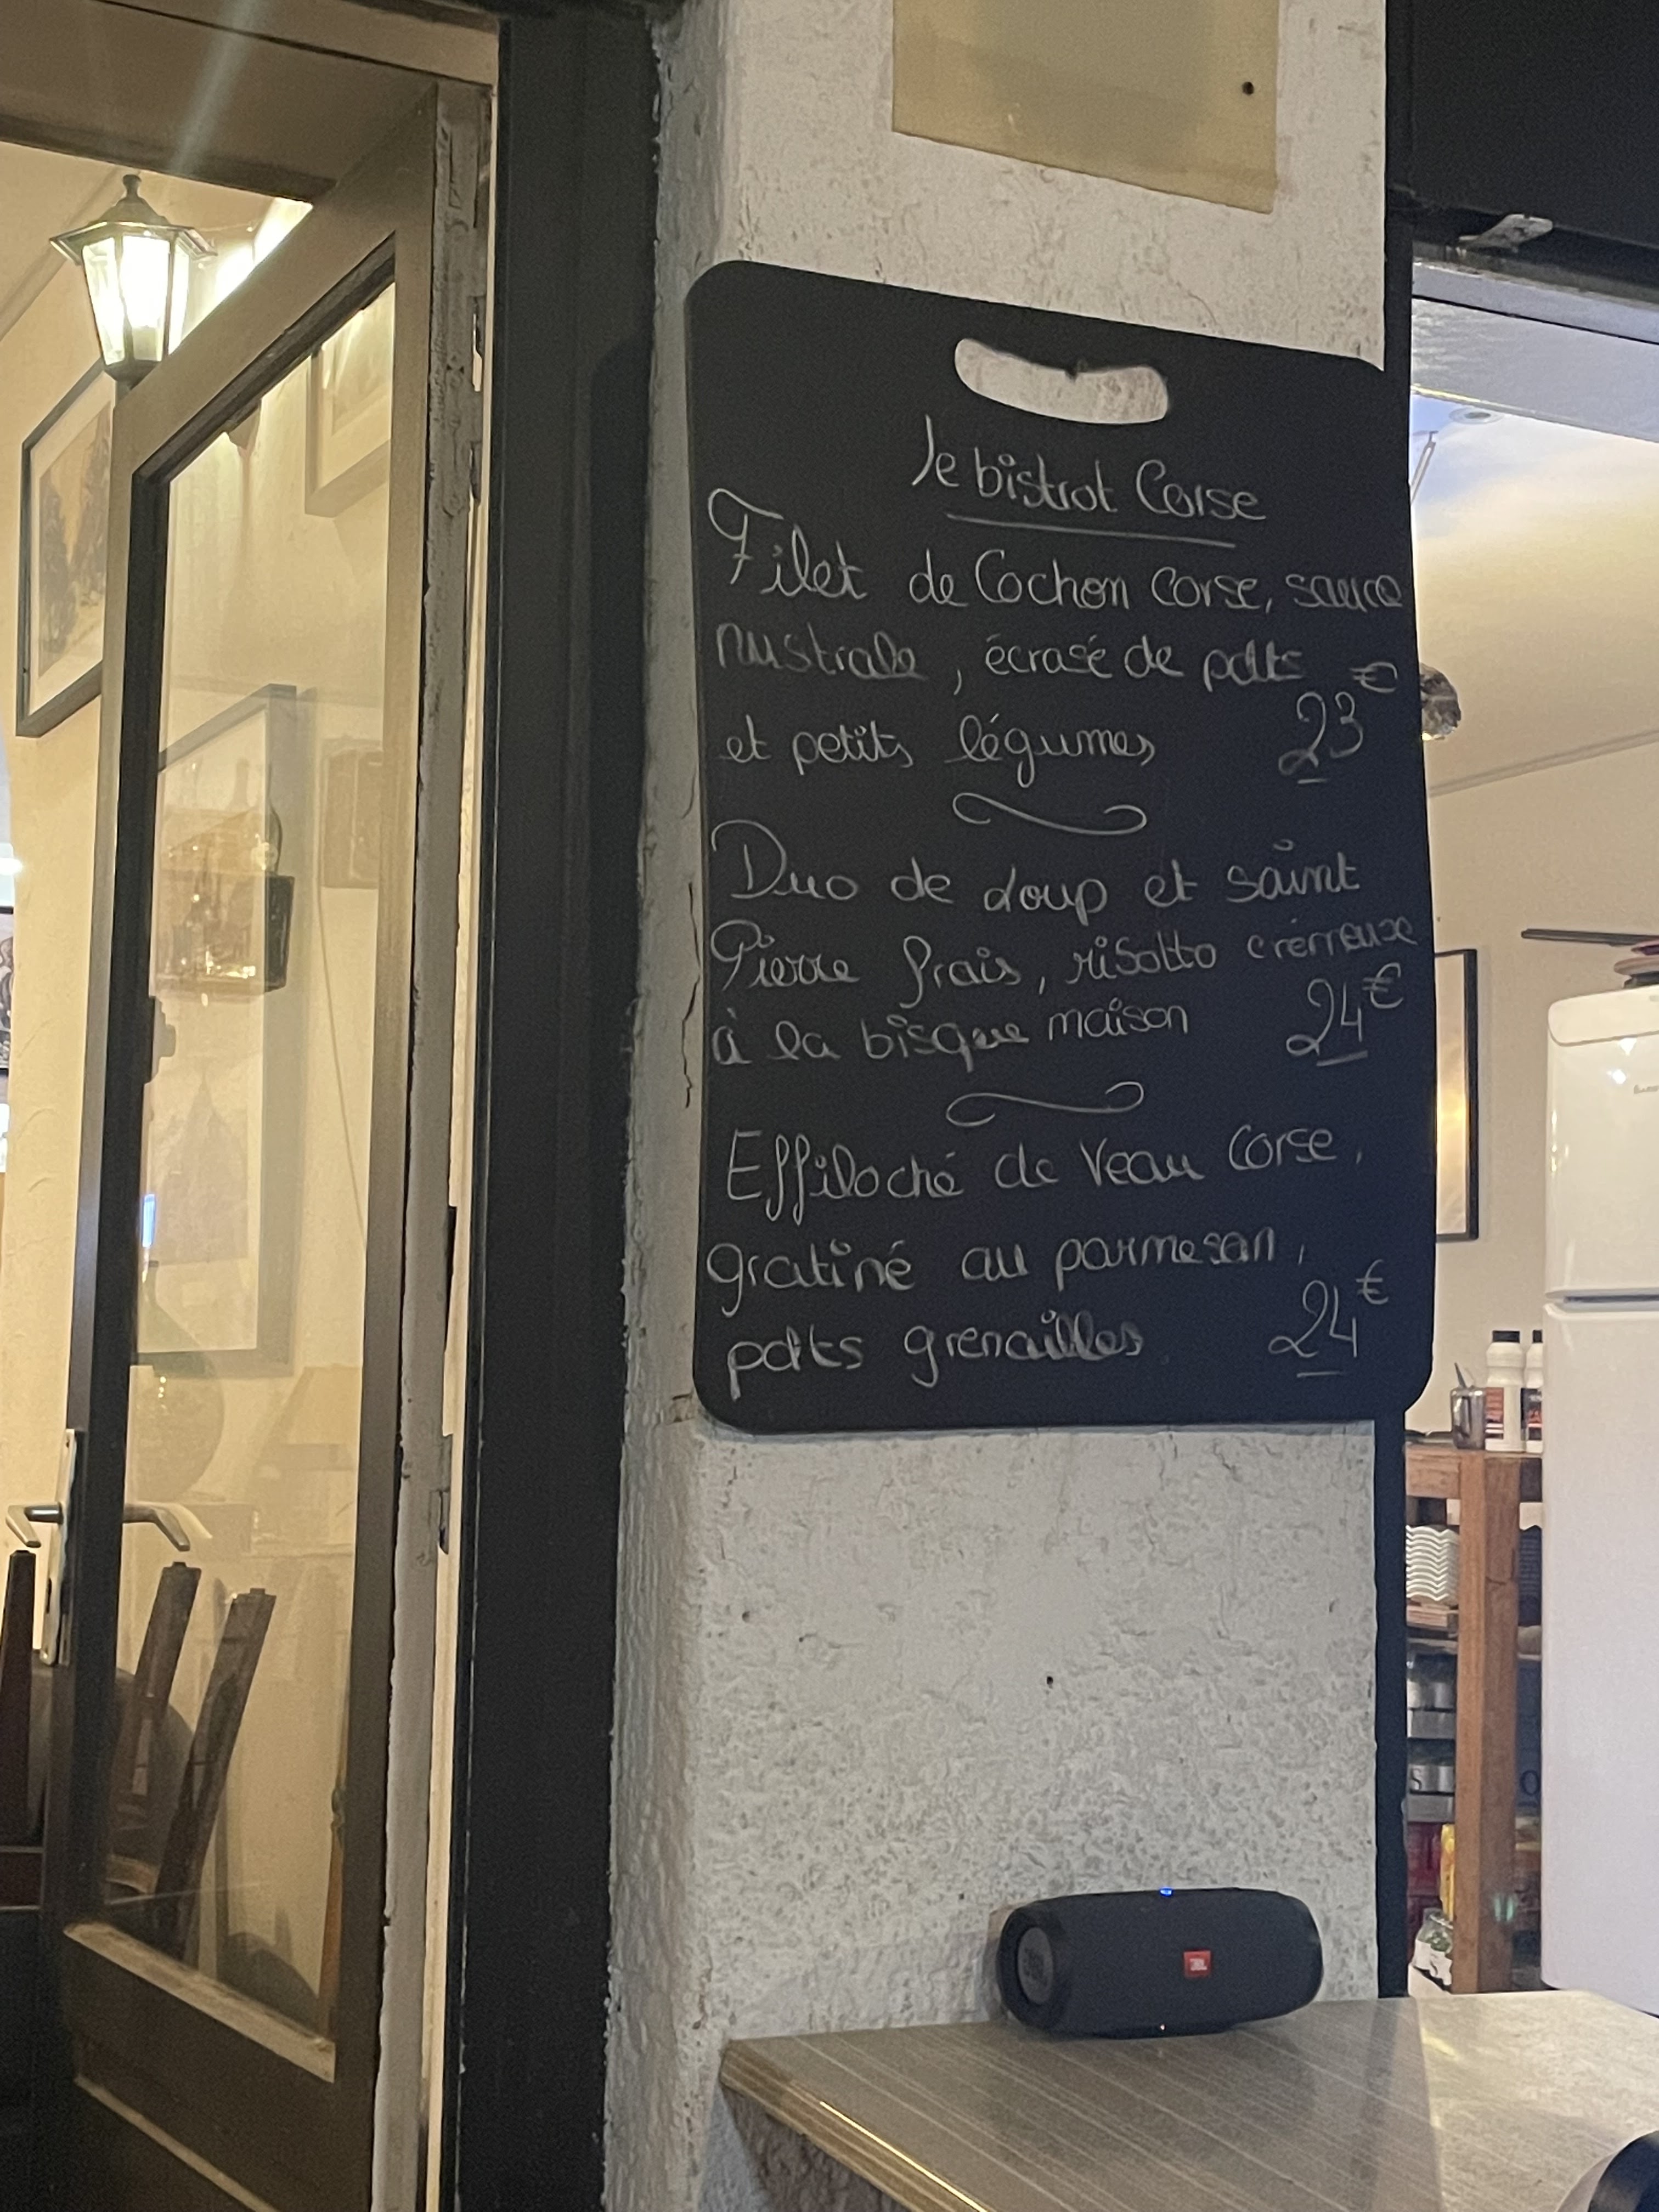 le bistrot Corse
Filet de Cochon Corse, sauce
nustrale, écrasé de pdts
et petits légumes 23€
Duo de Loup et saint
Pierre frais, risotto crémeuse
à la bisque maison 24€
Effiloché de Veau Corse,
gratiné au parmesan,
pdts grenailles 24€
JBL